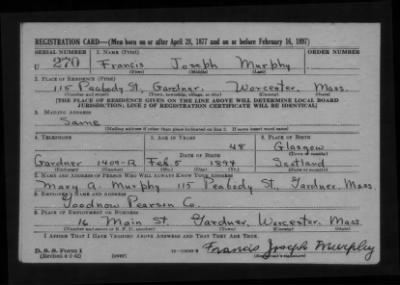 REGISTRATION CARD—(Men born on or after April 28, 1877 and on or before February 16, 1897)
SERIAL NUMBER 1. NAME (Print) ORDER NUMBER
U 270 Francis Joseph Murphy
(First) (Middle) (Last)
2. PLACE OF RESIDENCE (Print)
115 Peabody St, Gardner, Worcester, Mass.
(Number and street) (Town, township, village, or city) (County) (State)
[THE PLACE OF RESIDENCE GIVEN ON THE LINE ABOVE WILL DETERMINE LOCAL BOARD
JURISDICTION; LINE 2 OF REGISTRATION CERTIFICATE WILL BE IDENTICAL]
3. MAILING ADDRESS
Same
[Mailing address if other than place indicated on line 2. If same insert word same]
4. TELEPHONE 5. AGE IN YEARS 6. PLACE OF BIRTH
48 Glasgow
DATE OF BIRTH (Town or county)
Gardner 1409-R Feb. 5 1894 Scotland
(Exchange) (Number) (Mo.) (Day) (Yr.) (State or country)
7. NAME AND ADDRESS OF PERSON WHO WILL ALWAYS KNOW YOUR ADDRESS
Mary A. Murphy 115 Peabody St., Gardner, Mass.
8. EMPLOYER'S NAME AND ADDRESS
Goodnow Pearson Co.
9. PLACE OF EMPLOYMENT OR BUSINESS
16 Main St. Gardner, Worcester, Mass.
(Number and street or R. F. D. number) (Town) (County) (State)
I AFFIRM THAT I HAVE VERIFIED ABOVE ANSWERS AND THAT THEY ARE TRUE.
D. S. S. Form 1
(Revised 4-1-42) (over) Francis Joseph Murphy
(Registrant's signature)